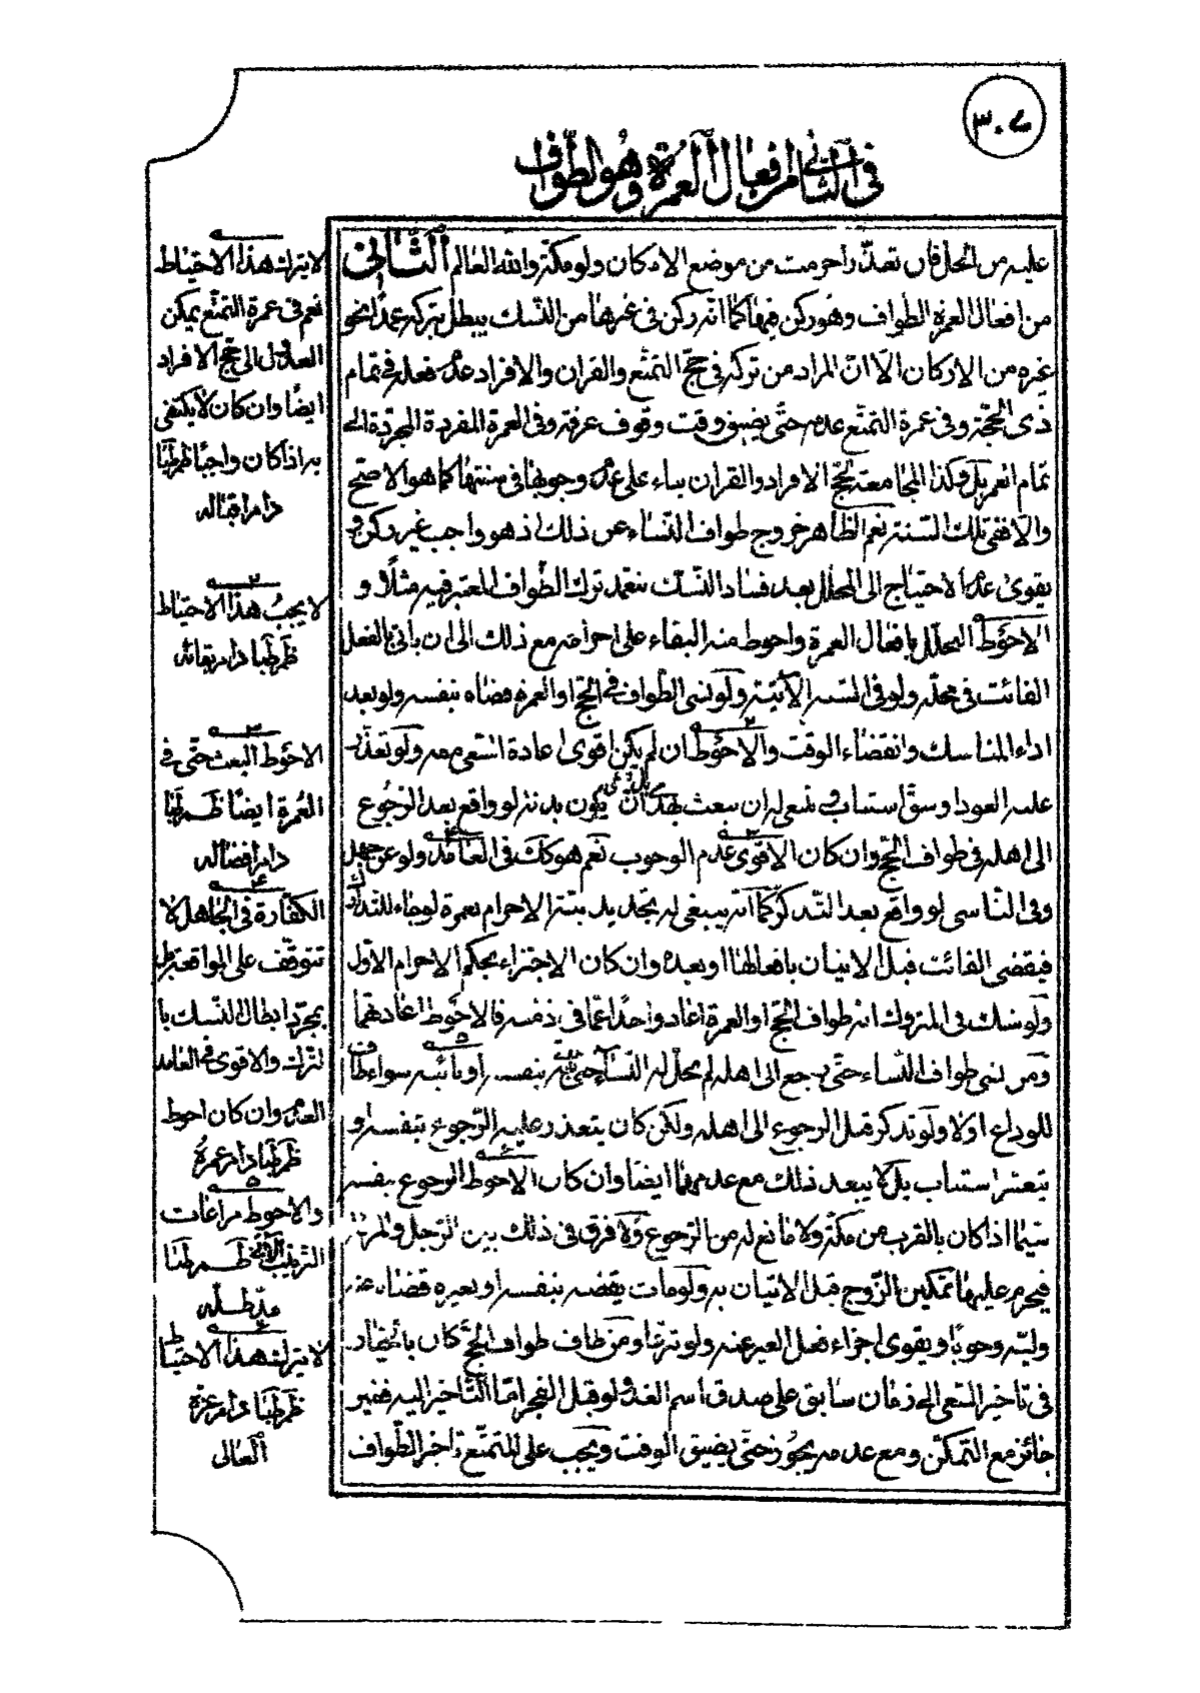 ٣٠٧
في الثاني من أفعال العمرة وهو الطواف
عليه من المحل فان تعذر احرمت من موضع الامكان ولو مكة والله العالم الثاني
من افعال العمرة الطواف وهو ركن فيها كما انه ركن في غيرها من النسك يبطل بتركه عمدا نحو
غيره من الاركان الا ان المراد من تركه في حج التمتع والقران والافراد عدم فعله في تمام
ذي الحجة وفي عمرة التمتع عدمه حتى يضيق وقت وقوف عرفة وفي العمرة المفردة المجردة الى
تمام العمر بل وكذا المجامعة لحج الافراد والقران بناء على عدم وجوبها في سنتها كما هو الاصح
والا ففي تلك السنة نعم الظاهر خروج طواف النساء عن ذلك اذ هو واجب غير ركن و
يقوى عدم الاحتياج الى المحلل بعد فساد النسك بتعمد ترك الطواف المعتبر فيه مثلا و
الاحوط التحلل بافعال العمرة واحوط منه البقاء على احرامه مع ذلك الى ان ياتي بالفعل
الفائت في محله ولو في السنة الآتية ولو نسى الطواف في الحج او العمرة قضاه بنفسه ولو بعد
اداء المناسك وانقضاء الوقت والاحوط ان لم يكن اقوى اعادة السعى معه ولو تعذر
عليه العود او شق استناب فيه وينبغي له ان يبعث بهدى يكون بدنة لو واقع بعد الرجوع
الى اهله في طواف الحج وان كان الاقوى عدم الوجوب نعم هو كك في العامد ولو عن جهل
وفي الناسى لو واقع بعد التذكر كما انه ينبغي له تجديد نية الاحرام بعمرة لو جاء للتدارك
فيقضى الفائت قبل الاتيان بافعالها او بعده وان كان الاجتزاء بحكم الاحرام الاول
ولو شك في المتروك انه طواف الحج او العمرة اعاد واحدا عما في ذمته فالاحوط اعادتهما
ومن نسى طواف النساء حتى رجع الى اهله لم يحل له النساء حتى بنفسه او نائبه سواء طاف
للوداع اولا ولو تذكر قبل الرجوع الى اهله ولكن كان يتعذر عليه الرجوع بنفسه او
يتعسر استناب بل لا يبعد ذلك مع عدمهما ايضا وان كان الاحوط الرجوع بنفسه
سيما اذا كان بالقرب من مكة ولا مانع له من الرجوع ولا فرق في ذلك بين الرجل والمرئة
فيحرم عليها تمكين الزوج قبل الاتيان به ولو مات يقضه بنفسه او بغيره قضاه عنه
وليه وجوبا ويقوى اجزاء فعل الغير عنه ولو تبرعا ومن طاف طواف الحج كان بالخيار
في تاخير السعى الى زمان سابق على صدق اسم الغد ولو قبل الفجر اما التاخير اليه فغير
جائز مع التمكن ومع عدمه يجوز حتى يضيق الوقت ويجب على المتمتع تاخر الطواف
لا يترك هذا الاحتياط
نعم في عمرة التمتع يمكن
العدول الى حج الافراد
ايضا وان كان لا يكتفى
به اذا كان واجبا ظم طبا
دام اقباله
٢
لا يجب هذا الاحتياط
ظم طبا دام بقائه
٣
الاحوط البعث حتى في
العمرة ايضا ظم طبا
دام افضاله
٤
الكفارة في الجاهل لا
تتوقف على المواقعة بل
بمجرد ابطال النسك با
لترك والاقوى في العامد
العدم وان كان احوط
ظم طبا دام عمره
٥
والاحوط مراعات
الترتيب ظم طبا
مد ظله
٦
لا يترك هذا الاحتياط
ظم طبا دام عزه
العالى